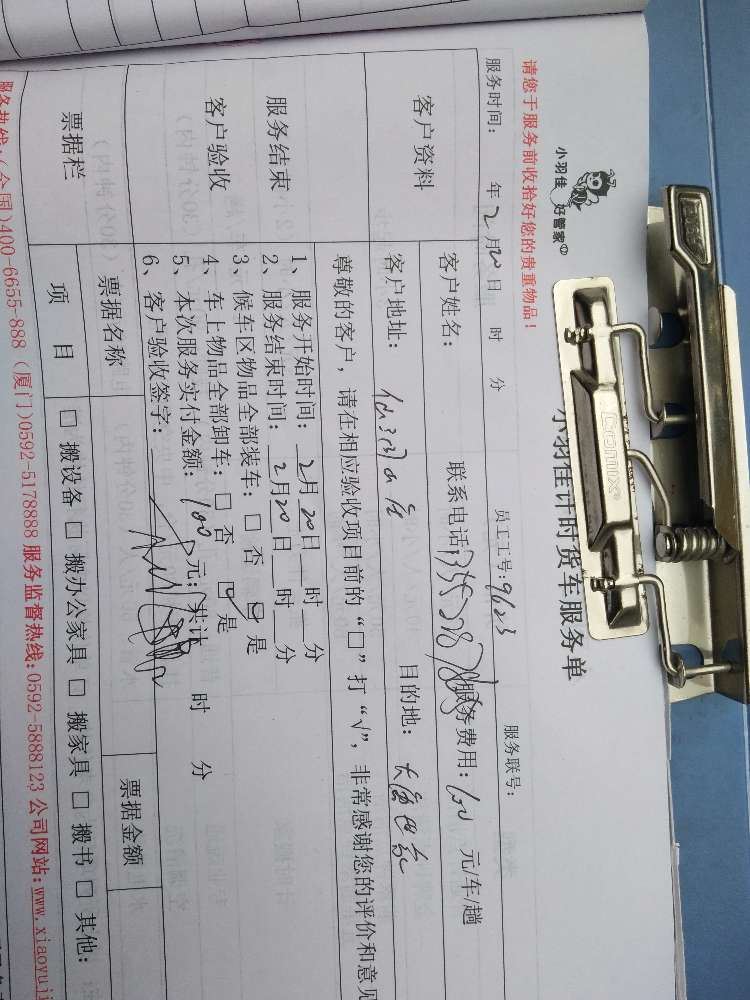 小羽佳 好管家
小羽佳计时货车服务单
请您于服务前收拾好您的贵重物品！
服务时间： 年 2 月 20 日 时 分 员工工号：9623 服务联号：
客户资料
客户姓名： 联系电话： 服务费用：100 元/车/趟
客户地址： 目的地：
尊敬的客户，请在相应验收项目前的“□”打“√”，非常感谢您的评价和意见
服务结束
客户验收
1、服务开始时间：2月20日 时 分
2、服务结束时间：2月20日 时 分
3、候车区物品全部装车：□ 否 ☑ 是
4、车上物品全部卸车：□ 否 ☑ 是
5、本次服务实付金额：100 元；共计 时 分
6、客户验收签字：
票据栏
票据名称 票据金额
项 目 □ 搬设备 □ 搬办公家具 □ 搬家具 □ 搬书 □ 其他：
服务热线：(全国)400-6655-888 (厦门)0592-5178888 服务监督热线：0592-5888123 公司网站：www.xiaoyuji